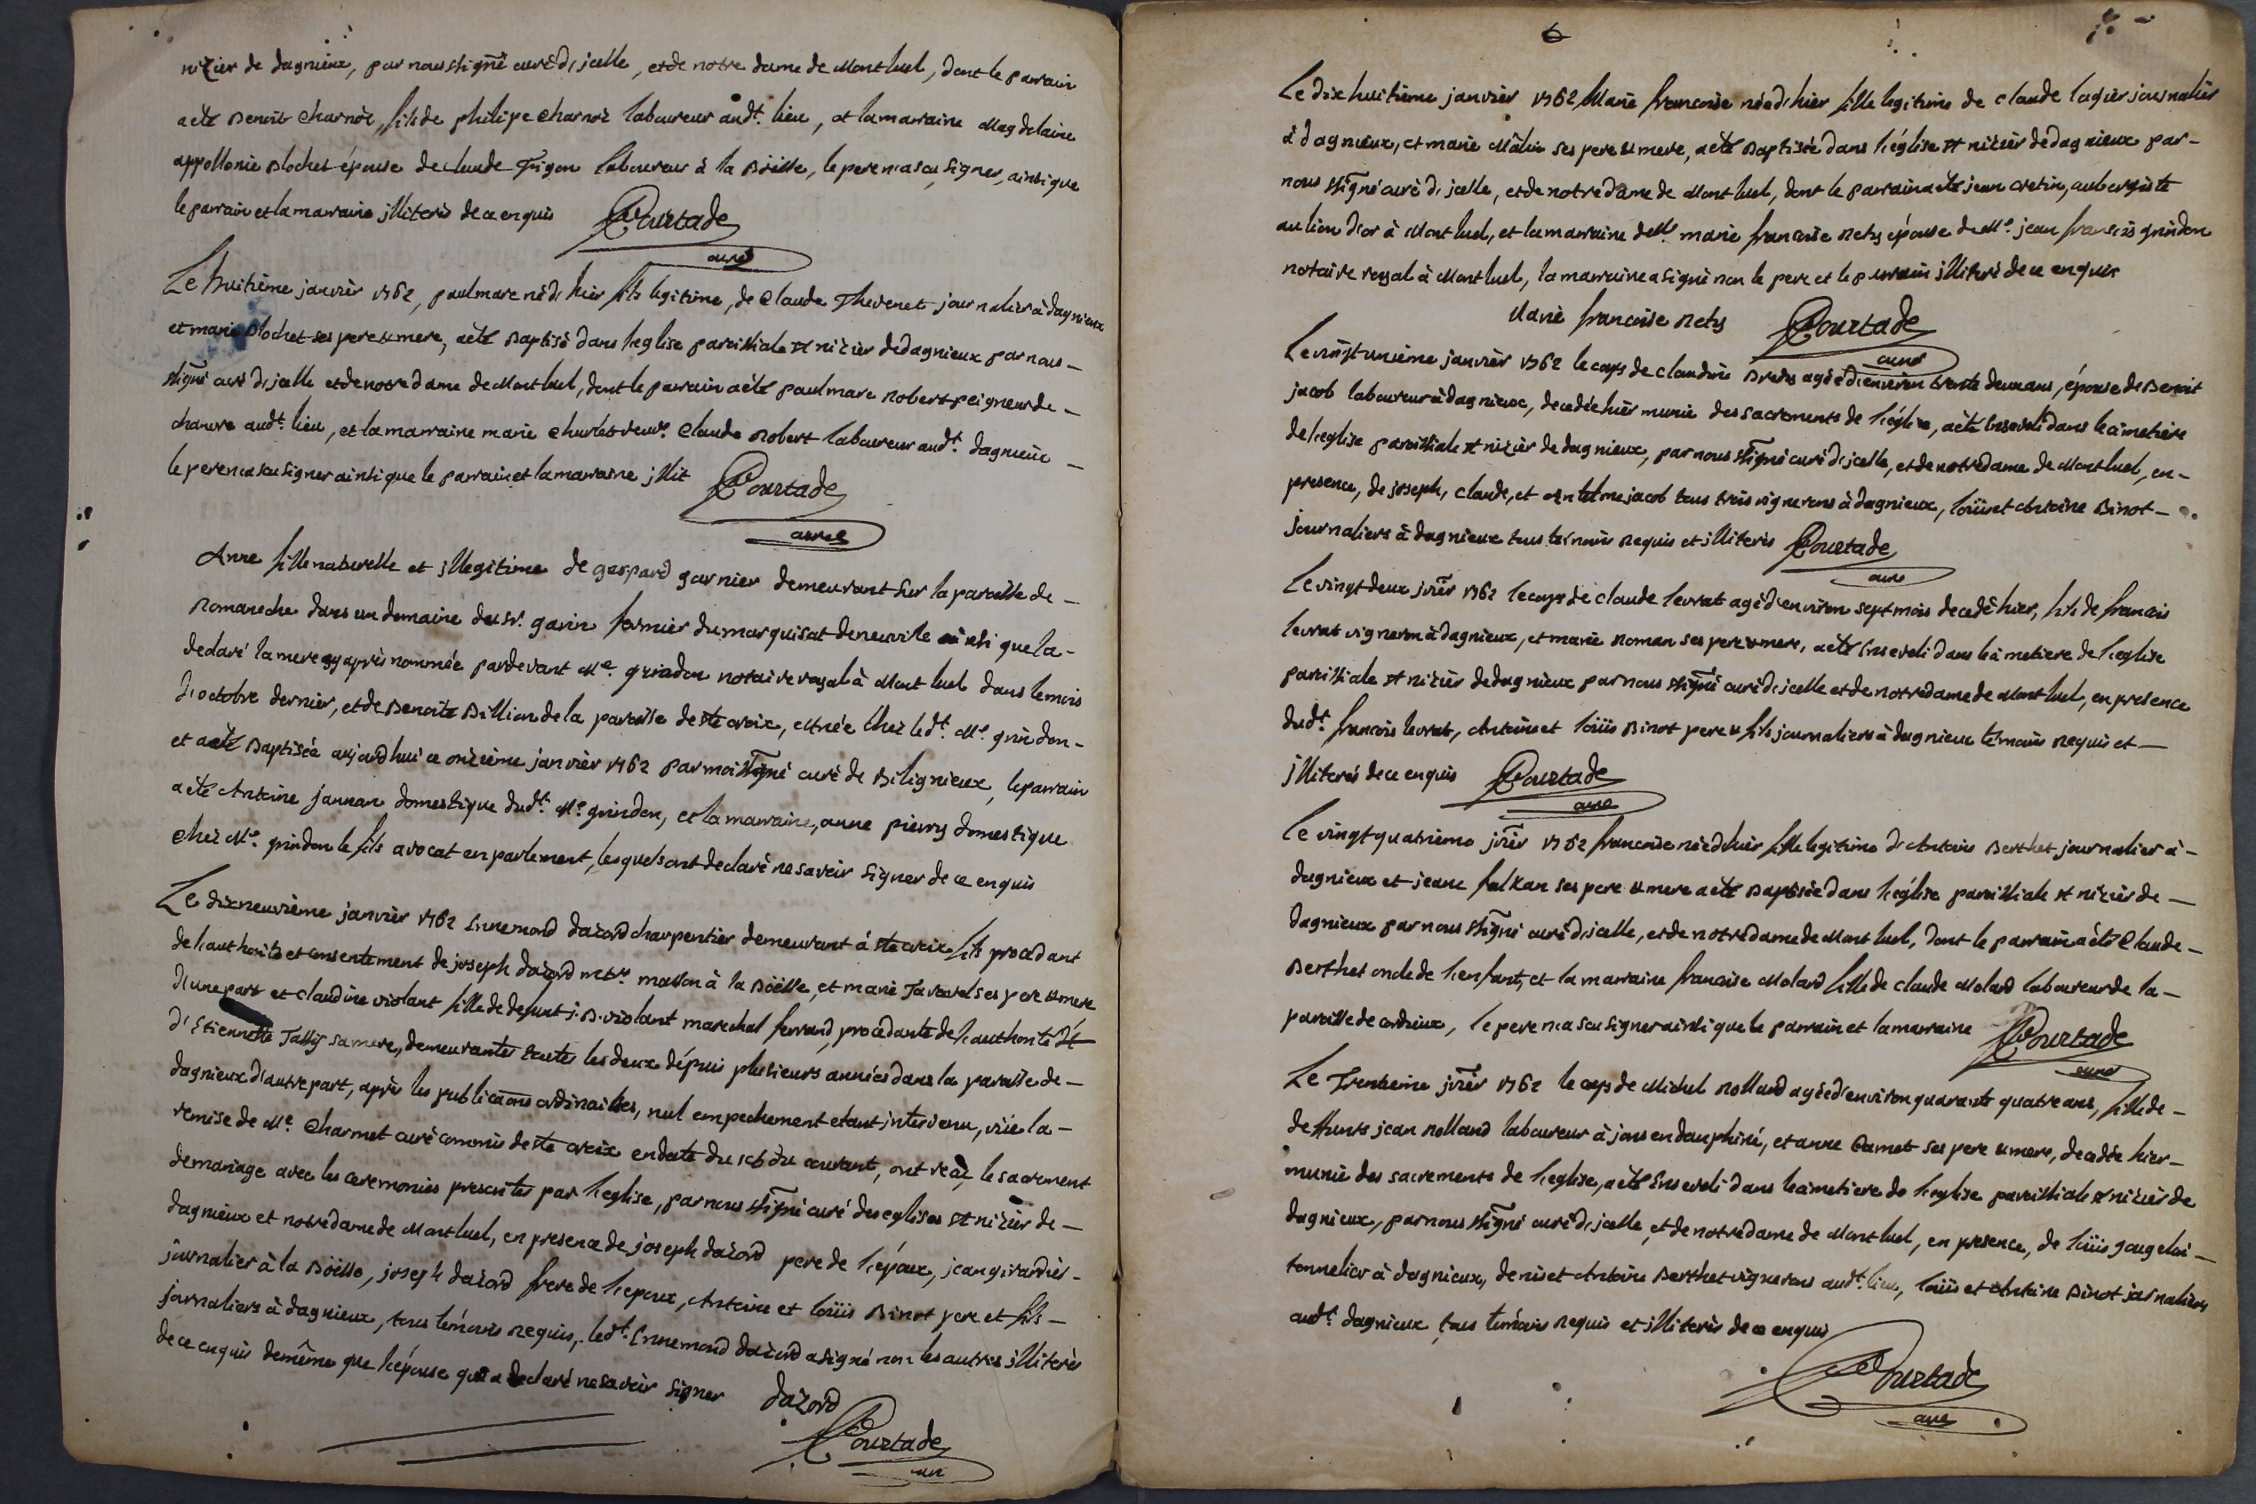 nizier de dagnieux, par nous sigñé curé d'icelle, et de notre dame de Montluel, dont le parrain
a eté Benoit Charnoz, fils de philipe Charnoz laboureur aud.t lieu, et la marraine Magdelaine
appollonie Blochet épouse de claude Figon laboureur à la Boisse, le pere n'a scu signer, ainsi que
le parrain et la marraine illiterés de ce enquis Courtade
curé
Le huitième janvier 1762, paul marc né d'hier fils legitime, de Claude Thevenet journalier à dagnieux
et marie Blochet ses pere et mere, a eté Baptisé dans l'eglise paroissiale st nizier de dagnieux par nous
sigñé curé d'icelle et de notre dame de Montluel, dont le parrain a eté paul marc Robert peigneur de
chanvre aud.t lieu, et la marraine marie Charlet veuve Claude Robert laboureur aud.t dagnieux
le pere n'a scu signer ainsi que le parrain et la marraine illit Courtade
curé
Anne fille naturelle et illegitime de gaspard garnier demeurant sur la paroisse de
Romaneche dans un domaine du sr. garin fermier du marquisat de neuville ainsi que l'a
declaré la mere cy après nommée pardevant Me. grindon notaire royal à Montluel dans le mois
d'octobre dernier, et de Benoite Billion de la paroisse de ste croix, est née chez led.t Me. grindon
et a eté Baptisée aujourd'hui ce onzième janvier 1762 par moi sigñé curé de Bilignieux, le parrain
a eté Antoine jannan domestique dud.t Me. grindon, et la marraine, anne pierry domestique
chez Me. grindon le fils avocat en parlement, lesquels ont declaré ne savoir signer de ce enquis
Le dixneuvième janvier 1762 Ennemond dazord charpentier demeurant à ste croix fils procedant
de l'authorité et consentement de joseph dazord mtre. masson à la Boësse, et marie ses pere et mere
d'une part et claudine violant fille de defunt j. B. violant marechal ferrand, procedante de l'authorité d'E
d'Etiennette Tassy sa mere, demeurantes toutes les deux dépuis plusieurs années dans la paroisse de
dagnieux d'autre part, après les publications ordinaires, nul empechement etant intervenu, vüe la
remise de Me. Charmet curé commis de ste croix en date du 16 du courant, ont reçû, le sacrement
de mariage avec les ceremonies prescrites par l'eglise, par nous sigñé curé des eglises st nizier de
dagnieux et notre dame de Montluel, en presence de joseph dazord pere de l'époux, jean girardier
journalier à la Boësse, joseph dazord frere de l'epoux, Antoine et loüis Binot pere et fils
journaliers à dagnieux, tous témoins requis, led.t Ennemond dazord a signé non les autres illiterés
de ce enquis de même que l'épouse qui a declaré ne savoir signer dazord
Courtade
curé
6
Le dix huitième janvier 1762 Marie francoise née d'hier fille legitime de claude lagier journalier
à dagnieux, et marie Mâlin ses pere et mere, a eté Baptisée dans l'église st nizier de dagnieux par
nous sigñé curé d'icelle, et de notre dame de Montluel, dont le parrain a eté jean cretin, aubergiste
au lion d'or à Montluel, et la marraine delle. marie francoise Rety épouse de Me. jean francois grindon
notaire royal à Montluel, la marraine a signé non le pere et le parrain illiterés de ce enquis
Marie francoise Rety Courtade
curé
Le vingt unième janvier 1762 le corps de claudine Brodet agée d'environ trente deux ans, épouse de Benoit
jacob laboureur à dagnieux, decedée hier munie des sacrements de l'église, a eté Enseveli dans le cimetière
de l'eglise paroissiale st nizier de dagnieux, par nous sigñé curé d'icelle, et de notre dame de Montluel, en
presence, de joseph, claude, et Antelme jacob tous trois vignerons à dagnieux, loüis et Antoine Binot
journaliers à dagnieux tous témoins requis et illiterés Courtade
curé
Le vingt deux jv̄ier 1762 le corps de claude levrat agé d'environ sept mois decedé hier, fils de francois
levrat vigneron à dagnieux, et marie Roman ses pere et mere, a eté Enseveli dans le cimetiere de l'eglise
paroissiale st nizier de dagnieux par nous sigñé curé d'icelle et de notre dame de Montluel, en presence
dud.t francois levrat, Antoine et loüis Binot pere et fils journaliers à dagnieux témoins requis et
illiterés de ce enquis Courtade
curé
Le vingt quatrième jv̄ier 1762 francoise née d'hier fille legitime d'Antoine Berthet journalier à
dagnieux et jeane falkan ses pere et mere a eté Baptisée dans l'église paroissiale st nizier de
dagnieux par nous sigñé curé d'icelle, et de notre dame de Montluel, dont le parrain a eté Claude
Berthet oncle de l'enfant, et la marraine francoise Molard fille de claude Molard laboureur de la
paroisse de cordieux, le pere n'a scu signer ainsi que le parrain et la marraine Courtade
curé
Le Trentieme jv̄ier 1762 le corps de Michel Rolland agé d'environ quarante quatre ans, fils de
deffunts jean Rolland laboureur à jons en dauphiné, et anne Camet ses pere et mere, decedé hier
munie des sacrements de l'eglise, a eté Enseveli dans le cimetiere de l'eglise paroissiale st nizier de
dagnieux, par nous sigñé curé d'icelle, et de notre dame de Montluel, en presence, de loüis
tonnelier à dagnieux, denis et Antoine Berthet vignerons aud.t lieu, loüis et Antoine Binot journaliers
aud.t dagnieux tous témoins requis et illiterés de ce enquis
Courtade
curé